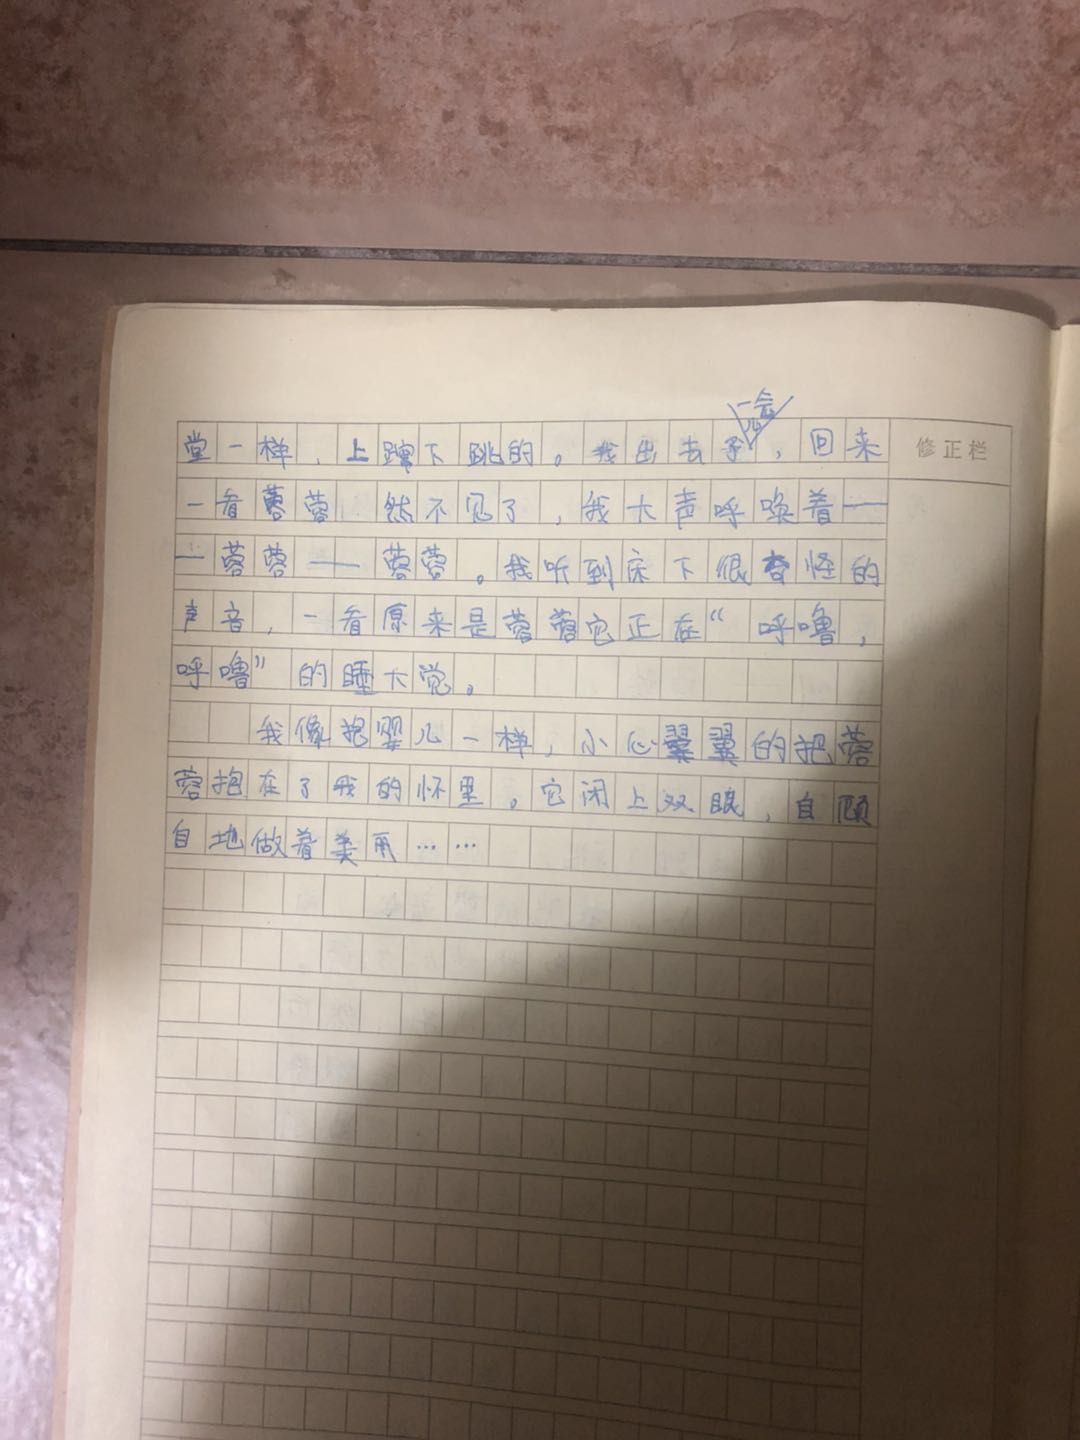 一会儿
堂一样，上蹿下跳的。我出去了，回来
修正栏
一看蓉蓉 然不见了，我大声呼唤着—
—蓉蓉——蓉蓉。我听到床下很奇怪的
声音，一看原来是蓉蓉它正在“呼噜，
呼噜”的睡大觉。
我像抱婴儿一样，小心翼翼的把蓉
蓉抱在了我的怀里。它闭上双眼，自顾
自地做着美
……